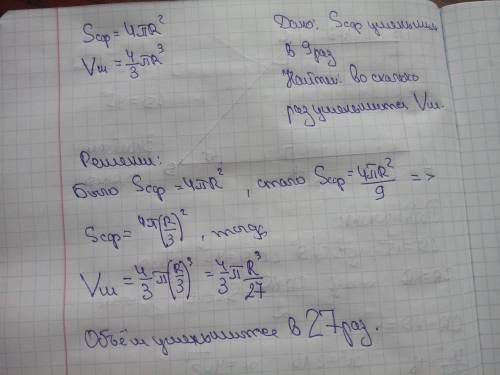 Sсф = 4πR²
Vш = 4/3 πR³
Дано: Sсф уменьшили
в 9 раз
Найти: во сколько
раз уменьшится Vш.
Решение:
Было Sсф = 4πR², стало Sсф = 4πR²/9 =>
Sсф = 4π(R/3)², тогда
Vш = 4/3 π(R/3)³ = 4/3 π R³/27
Объём уменьшится в 27 раз.